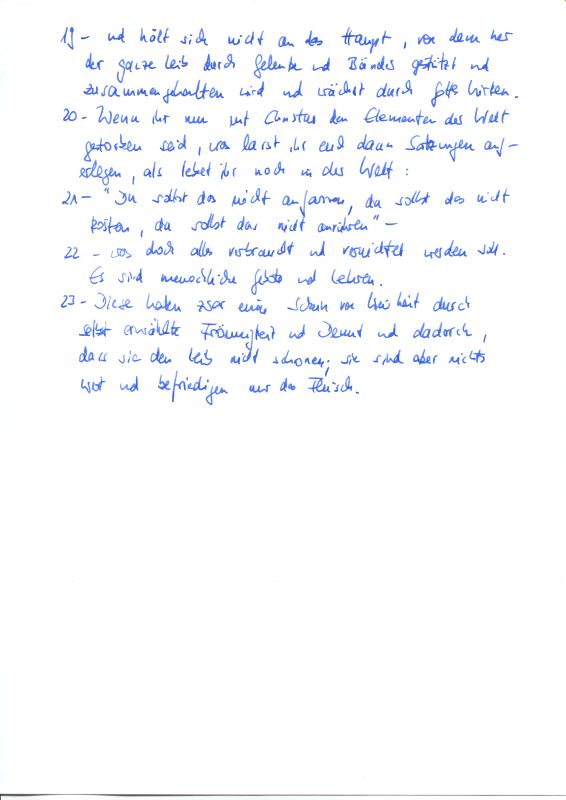 19 - und hält sich nicht an das Haupt, von dem her
der ganze Leib durch Gelenke und Bänder gestützt und
zusammengehalten wird und wächst durch Gottes Wirken.
20 - Wenn ihr nun mit Christus den Elementen der Welt
gestorben seid, was lasst ihr euch dann Satzungen auf-
erlegen, als lebtet ihr noch in der Welt:
21 - "Du sollst das nicht anfassen, du sollst das nicht
kosten, du sollst das nicht anrühren" -
22 - was doch alles verbraucht und vernichtet werden soll.
Es sind menschliche Gebote und Lehren.
23 - Diese haben zwar einen Schein von Weisheit durch
selbst erwählte Frömmigkeit und Demut und dadurch,
dass sie den Leib nicht schonen; sie sind aber nichts
wert und befriedigen nur das Fleisch.